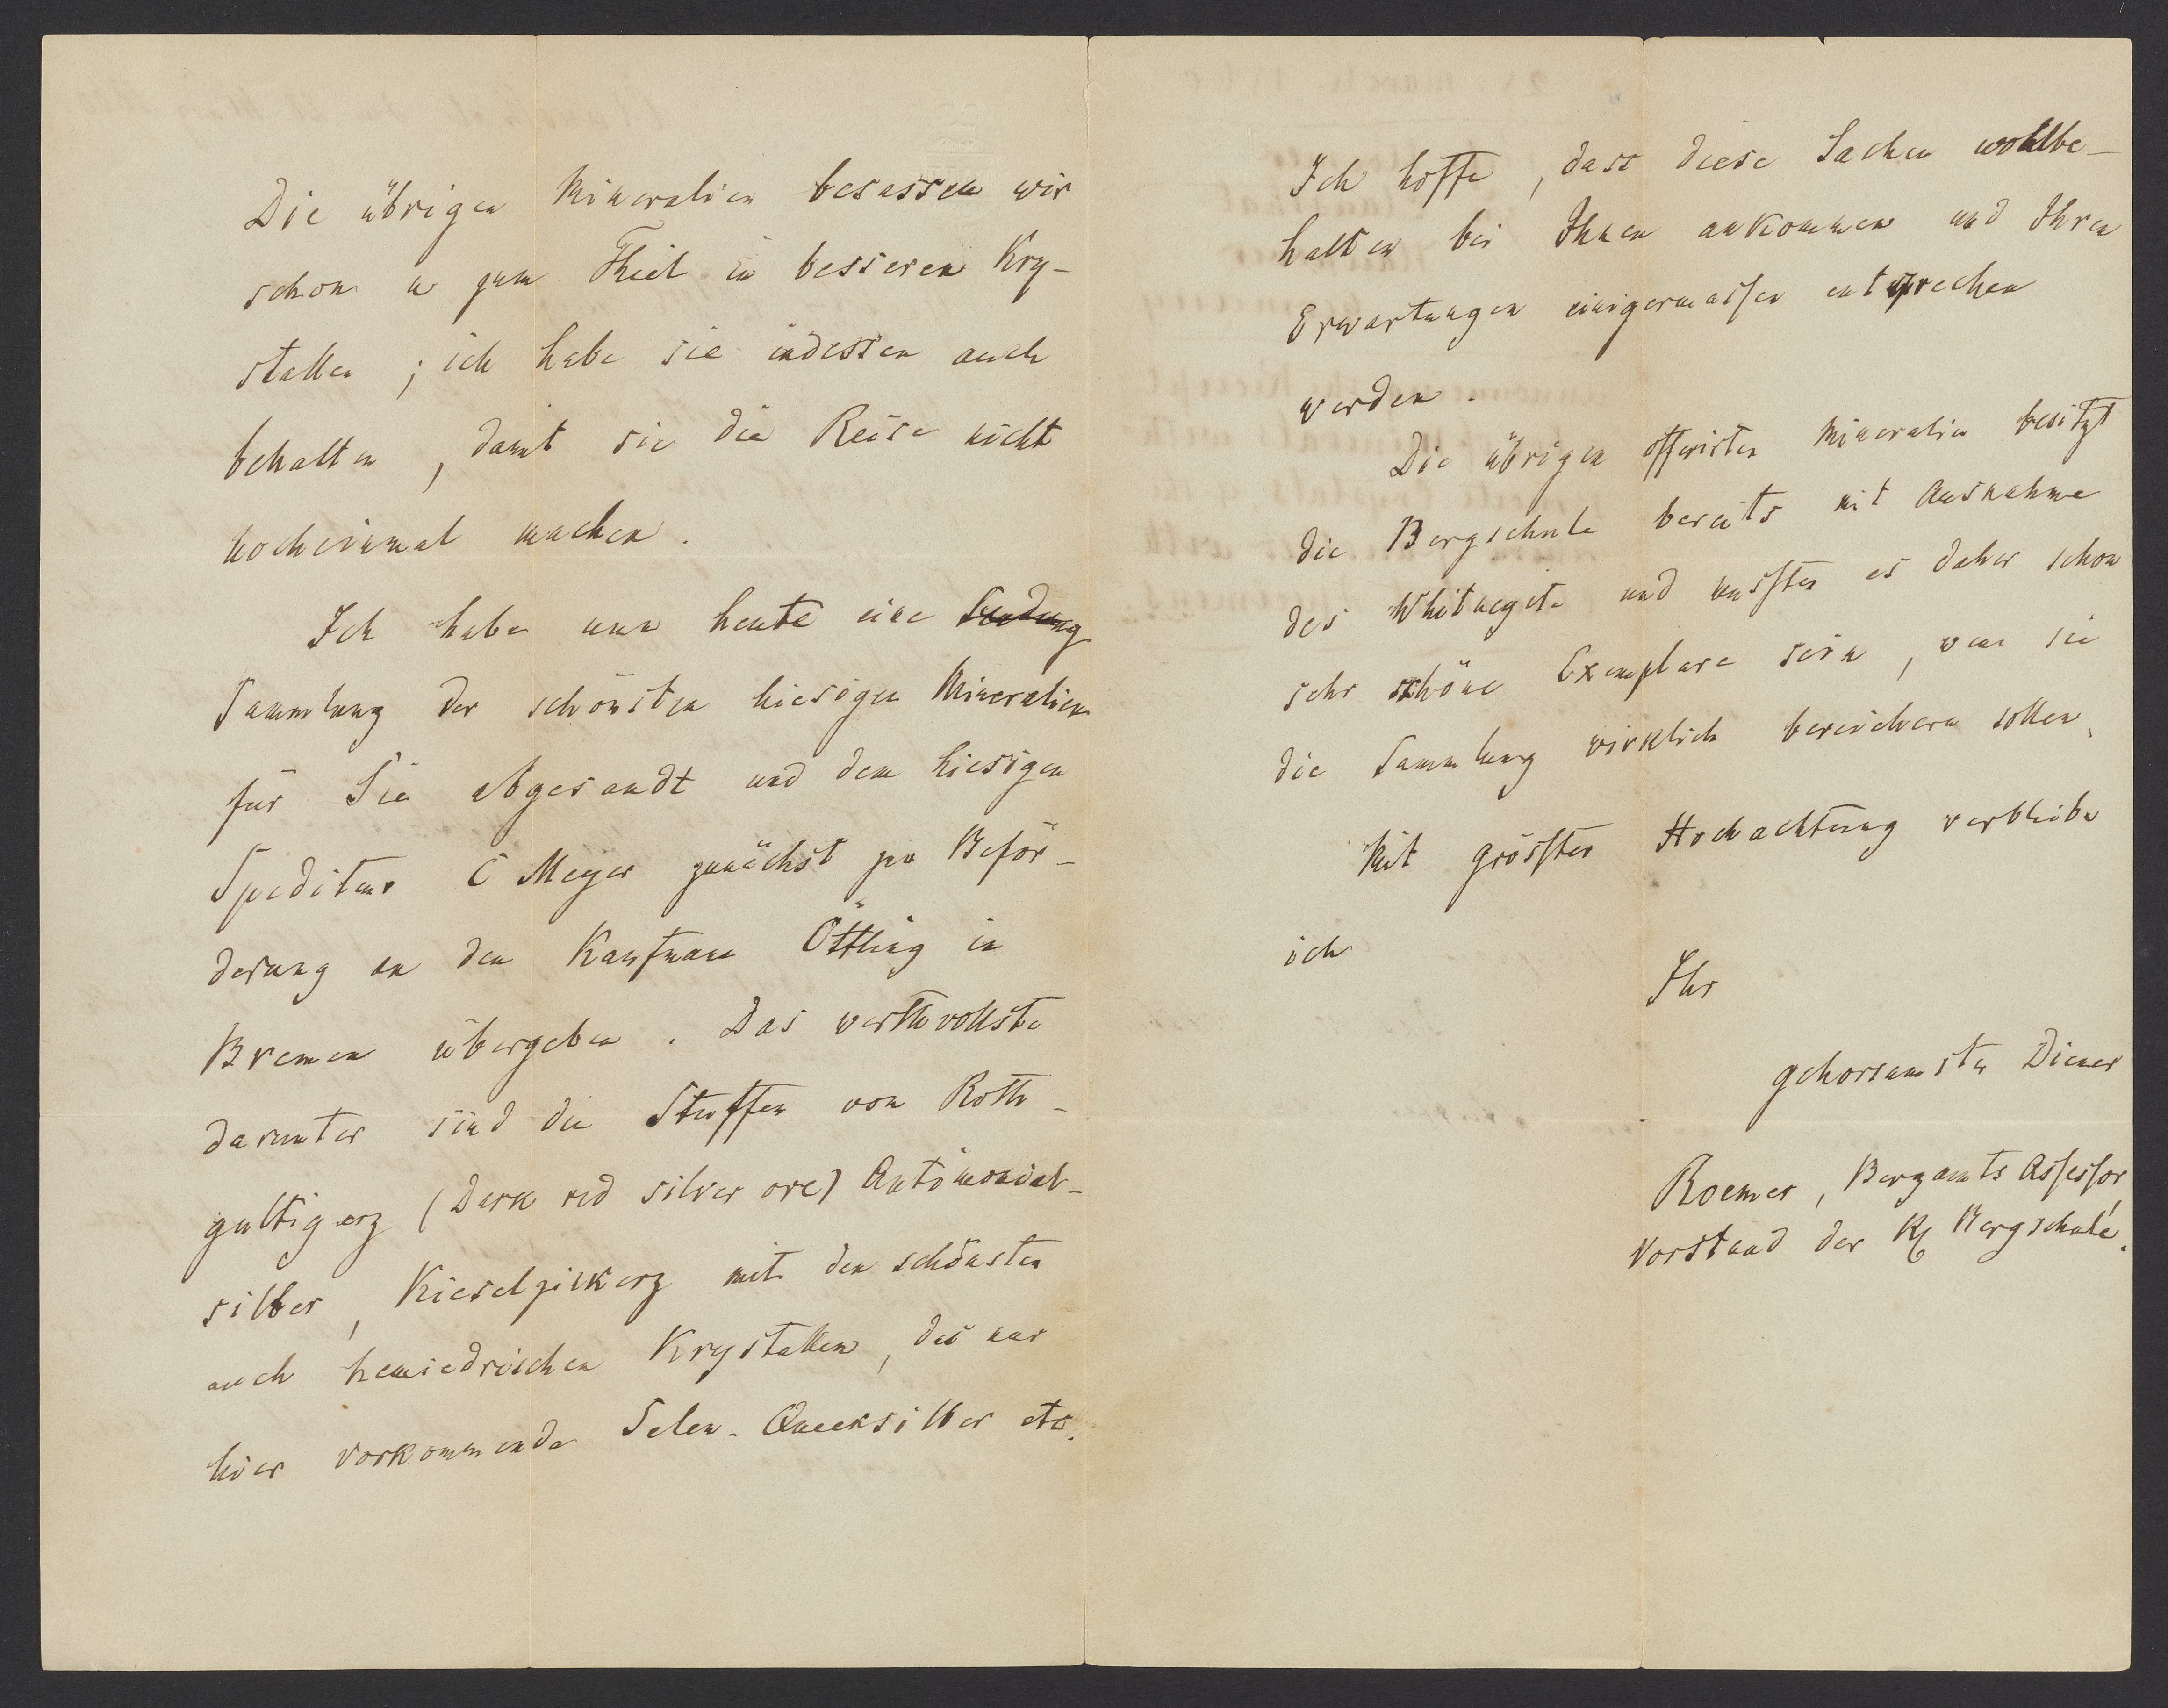 Die übrigen Mineralien besassen wir
schon u zum Theil in besseren Kry-
stallen ; ich habe sie indessen auch
behalten , damit sie die Reise nicht
nocheinmal machen .
Ich habe nun heute eine Sendung
Sammlung der schönsten hiesigen Mineralien
für Sie abgesandt und dem hiesigen
Spediteur C Meyer zunächst zu Beför-
derung an den Kaufmann Öttling in
Bremen übergeben . Das werthvollste
darunter sind die Stuffen von Roth-
gultigerz (Dark red silver ore) Antimonial-
silber , Kieselzinkerz mit den schönsten
auch hemiedrischen Krystallen , das nur
hier vorkommende Selen-Quecksilber etc.
Ich hoffe , dass diese Sachen wohlbe-
halten bei Ihnen ankommen und Ihren
Erwartungen einigermassen entsprechen
werden .
Die übrigen offerirten Mineralien besitzt
die Bergschule bereits mit Ausnahme
des Whitneyits und müssten es daher schon
sehr schöne Exemplare sein , wenn sie
die Sammlung wirklich bereichern sollen.
Mit grösster Hochachtung verbleibe
ich
Ihr
gehorsamster Diener
Roemer , Bergamts Assessor,
Vorstand der Kg Bergschule.